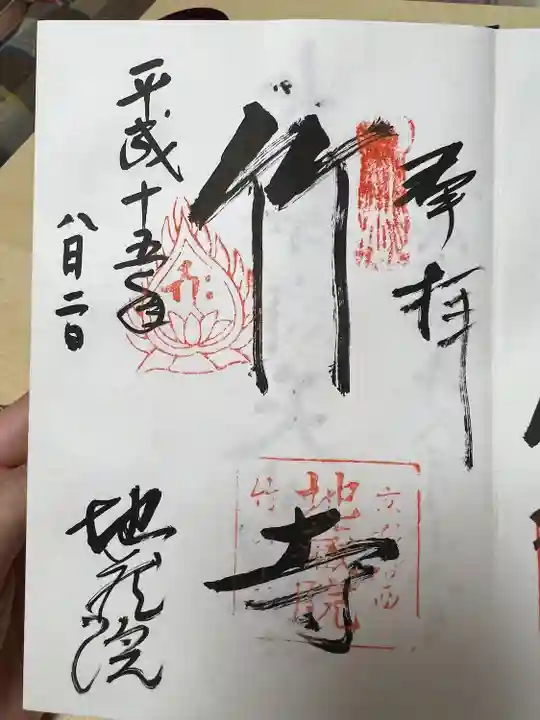 奉拝
竹寺
平成十五年
八月二日
地蔵院
地蔵院